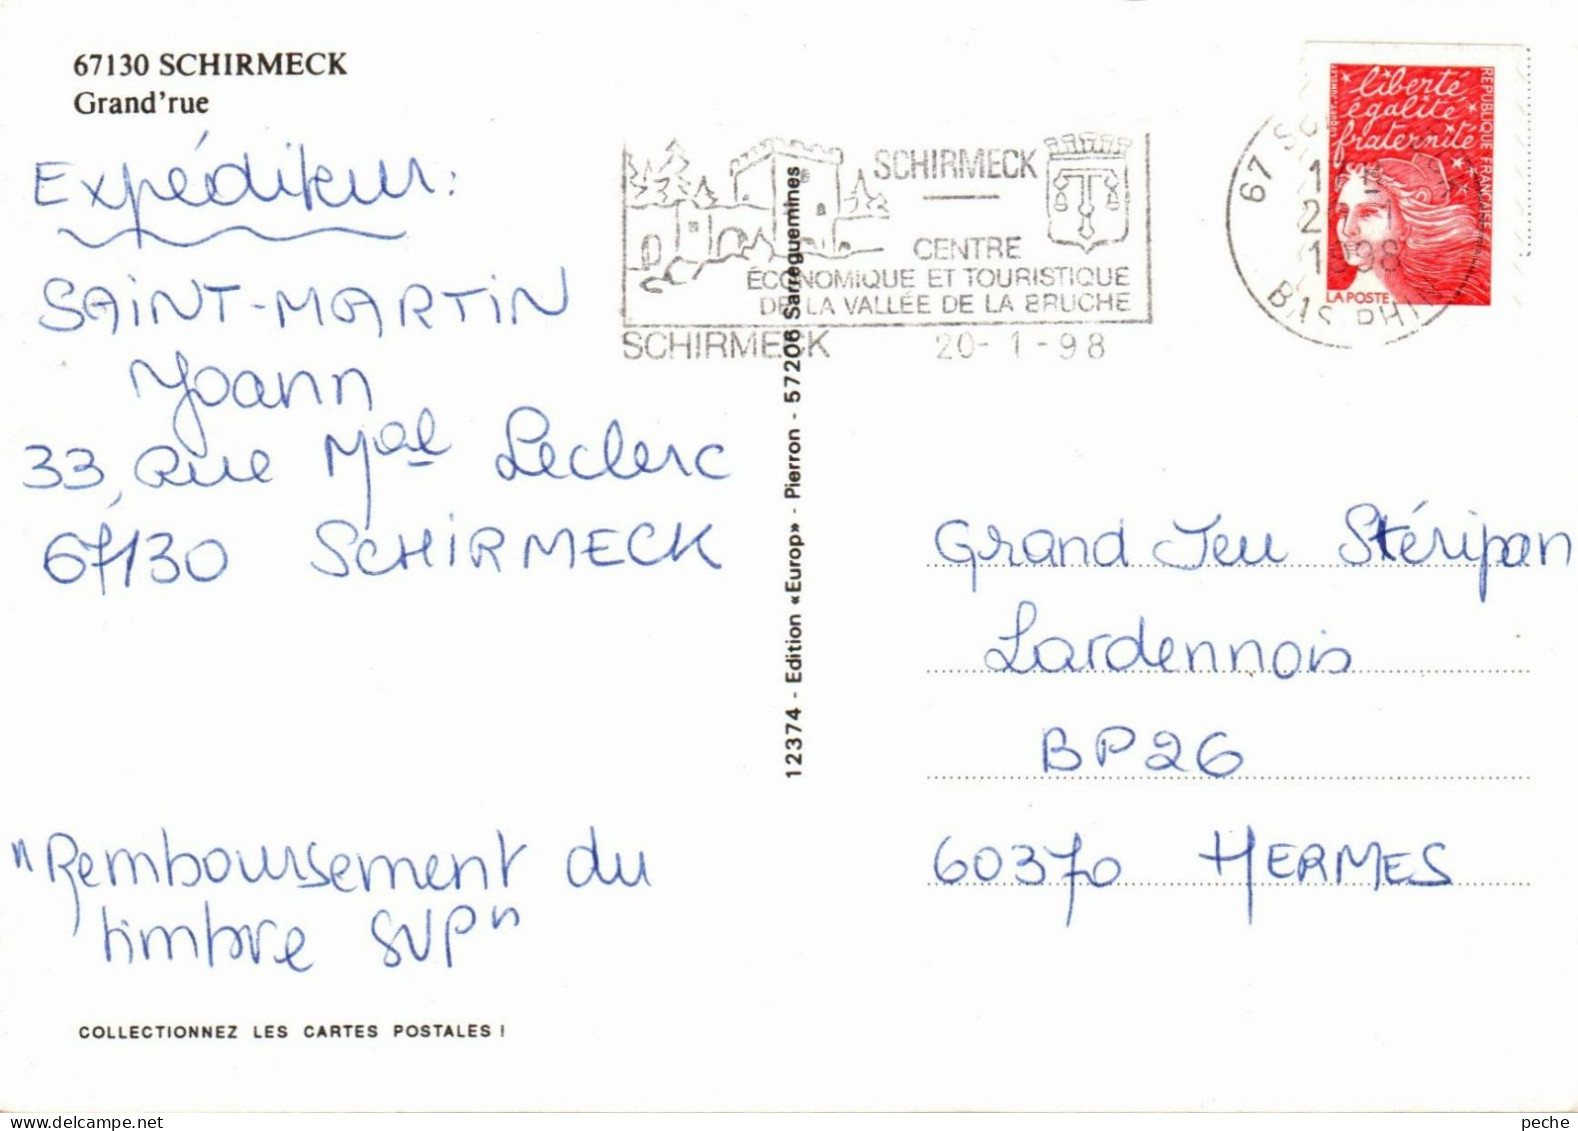 67130 SCHIRMECK
Grand'rue
Expéditeur:
SAINT-MARTIN
Yoann
33, Rue Mal Leclerc
67130 SCHIRMECK
"Remboursement du
timbre SVP"
COLLECTIONNEZ LES CARTES POSTALES !
12374 - Edition «Europ» - Pierron - 57206 Sarreguemines
SCHIRMECK
CENTRE
ÉCONOMIQUE ET TOURISTIQUE
DE LA VALLÉE DE LA BRUCHE
SCHIRMECK 20-1-98
liberté
égalité
fraternité
REPUBLIQUE FRANÇAISE
LA POSTE
67
1998
BAS RHIN
Grand Jeu Stéripan
Lardennois
BP26
60370 HERMES
peche